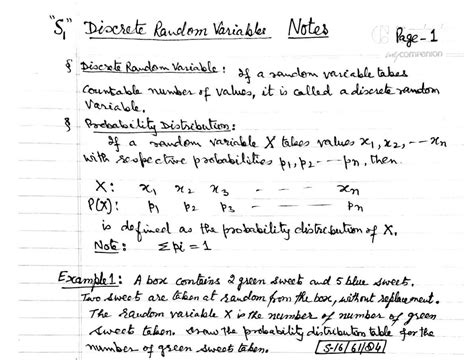 "S₁" Discrete Random Variables Notes Page-1
§ Discrete Random Variable: If a random variable takes
countable number of values, it is called a discrete random
variable.
§ Probability Distribution:
If a random variable X takes values x₁, x₂, --- xn
with respective probabilities p₁, p₂ --- pn, then
X: x₁ x₂ x₃ - - - - xn
P(X): p₁ p₂ p₃ - - - - pn
is defined as the probability distribution of X.
Note: Σ pi = 1
Example 1: A box contains 2 green sweets and 5 blue sweets.
Two sweets are taken at random from the box, without replacement.
The random variable X is the number of number of green
sweets taken. Draw the probability distribution table for the
number of green sweets taken. S-16/61/Q4